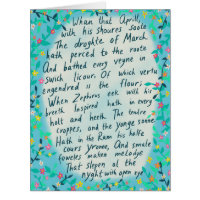 Whan that Aprill,
with his shoures soote
The droghte of March
hath perced to the roote
And bathed every veyne in
swich licour, Of which vertu
engendred is the flour;
When Zephirus eek with his
breeth Inspired hath in every
holt and heeth The tendre
croppes, and the yonge sonne
Hath in the Ram his halfe
cours yronne, And smale
foweles maken melodye
That slepen al the
nyght with open eye